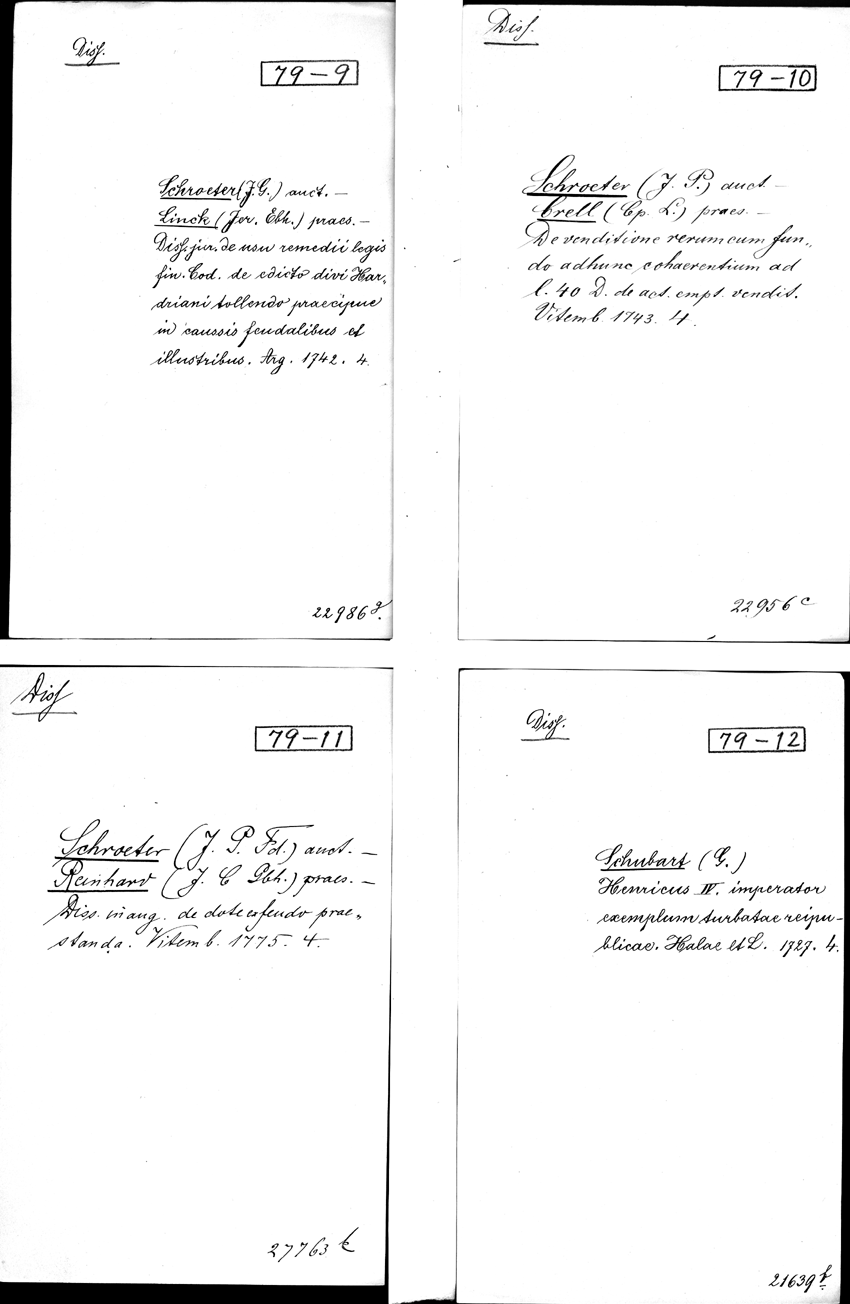 Diss.
79-9
Schroeter (J. G.) auct. —
Linck (Jer. Ebh.) praes. —
Diss. jur. de usu remedii legis
fin. Cod. de edicto divi Har„
driani tollendo praecipue
in caussis feudalibus et
illustribus. Arg. 1742. 4.
22986
Diss.
79-10
Schroeter (J. P.) auct. —
Crell (Cp. L.) praes. —
De venditione rerum cum fun„
do adhunc cohaerentium ad
l. 40 D. de act. empt. vendit.
Vitemb. 1743. 4.
22956 c
Diss
79-11
Schroeter (J. P. Fd.) auct. —
Reinhard (J. C Gbh.) praes. —
Diss. inaug. de dote ex feudo prae„
standa. Vitemb. 1775. 4.
27763 k
Diss.
79-12
Schubart (G.)
Henricus IV. imperator
exemplum turbatae reipu-
blicae. Halae et L. 1727. 4.
21639